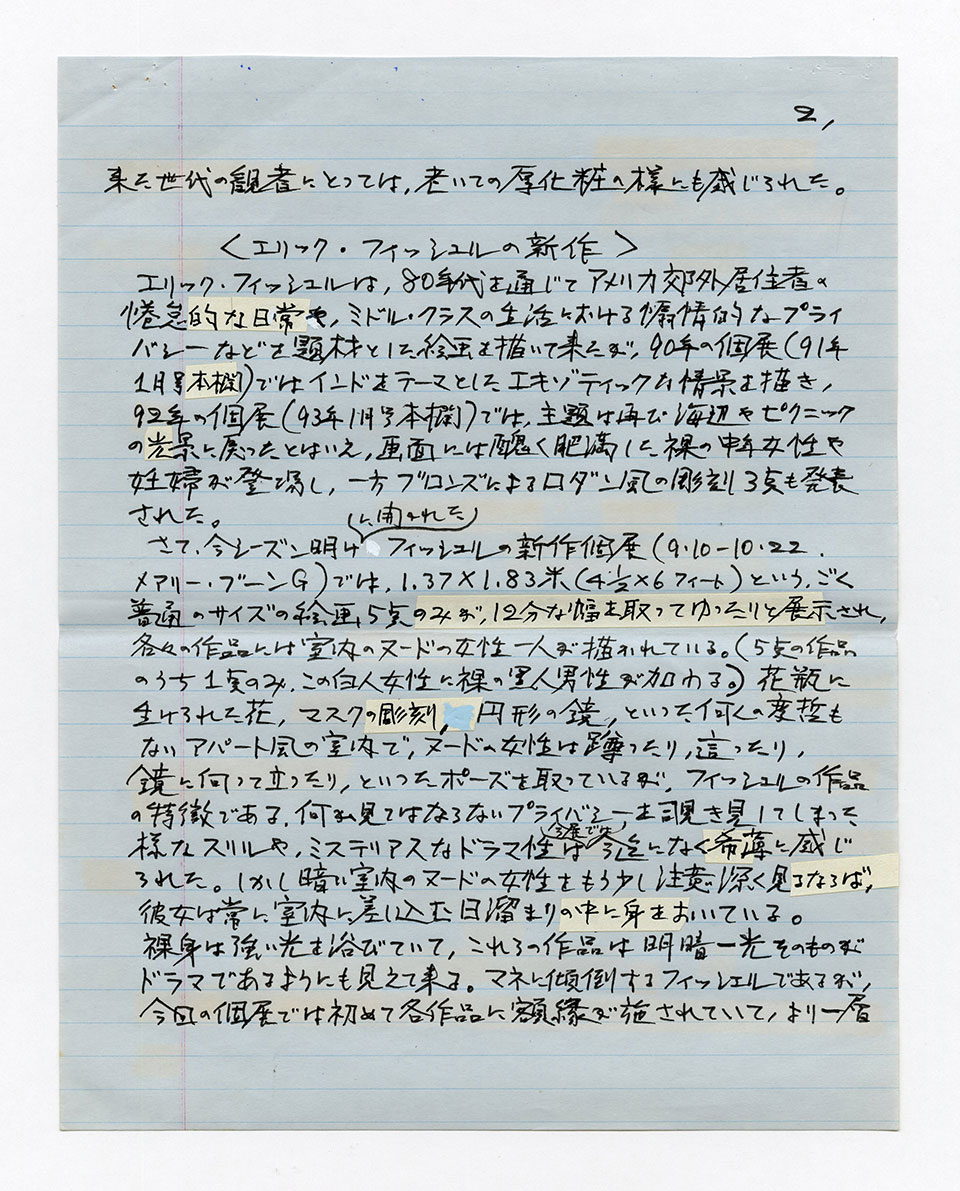 2,
来た世代の観者にとっては,老いての厚化粧の様にも感じられた。
〈エリック・フィッシュルの新作〉
エリック・フィッシュルは,80年代を通じてアメリカ郊外居住者の
倦怠的な日常や,ミドル・クラスの生活における欺情的なプライ
バシーなどを題材とした絵画を描いて来たが,90年の個展(91年
1月号本欄)ではインドをテーマとしたエキゾティックな情景を描き,
92年の個展(93年1月号本欄)では,主題は再び海辺やピクニック
の光景に戻ったとはいえ,画面には醜く肥満した裸の中年女性や
妊婦が登場し,一方ブロンズによるロダン風の彫刻3点も発表
された。
(に開かれた)
さて,今シーズン明けフィッシュルの新作個展(9・10-10・22.
メアリー・ブーンG)では,1.37×1.83米(4½×6フィート)という,ごく
普通のサイズの絵画,5点のみが,12分な幅を取ってゆったりと展示され,
各々の作品には室内のヌードの女性一人が描かれている。(5点の作品
のうち1点のみ,この白人女性に裸の黒人男性が加わる。)花瓶に
生けられた花,マスクの彫刻,円形の鏡,といった何くの変哲も
ないアパート風の室内で,ヌードの女性は蹲ったり,這ったり,
鏡に向って立ったり,といったポーズを取っているが,フィッシュルの作品
の特徴である,何か見てはならないプライバシーを覗き見してしまった
様なスリルや,ミステリアスなドラマ性は になく希薄に感じ
られた。しかし暗い室内のヌードの女性をもう少し注意深く見るならば,
彼女は常に室内に差し込む日溜まりの中に身をおいている。
裸身は強い光を浴びていて,これらの作品は明暗―光そのものが
ドラマであるようにも見えて来る。マネに傾倒するフィッシュルであるが,
今回の個展では初めて各作品に額縁が施されていて,より一層